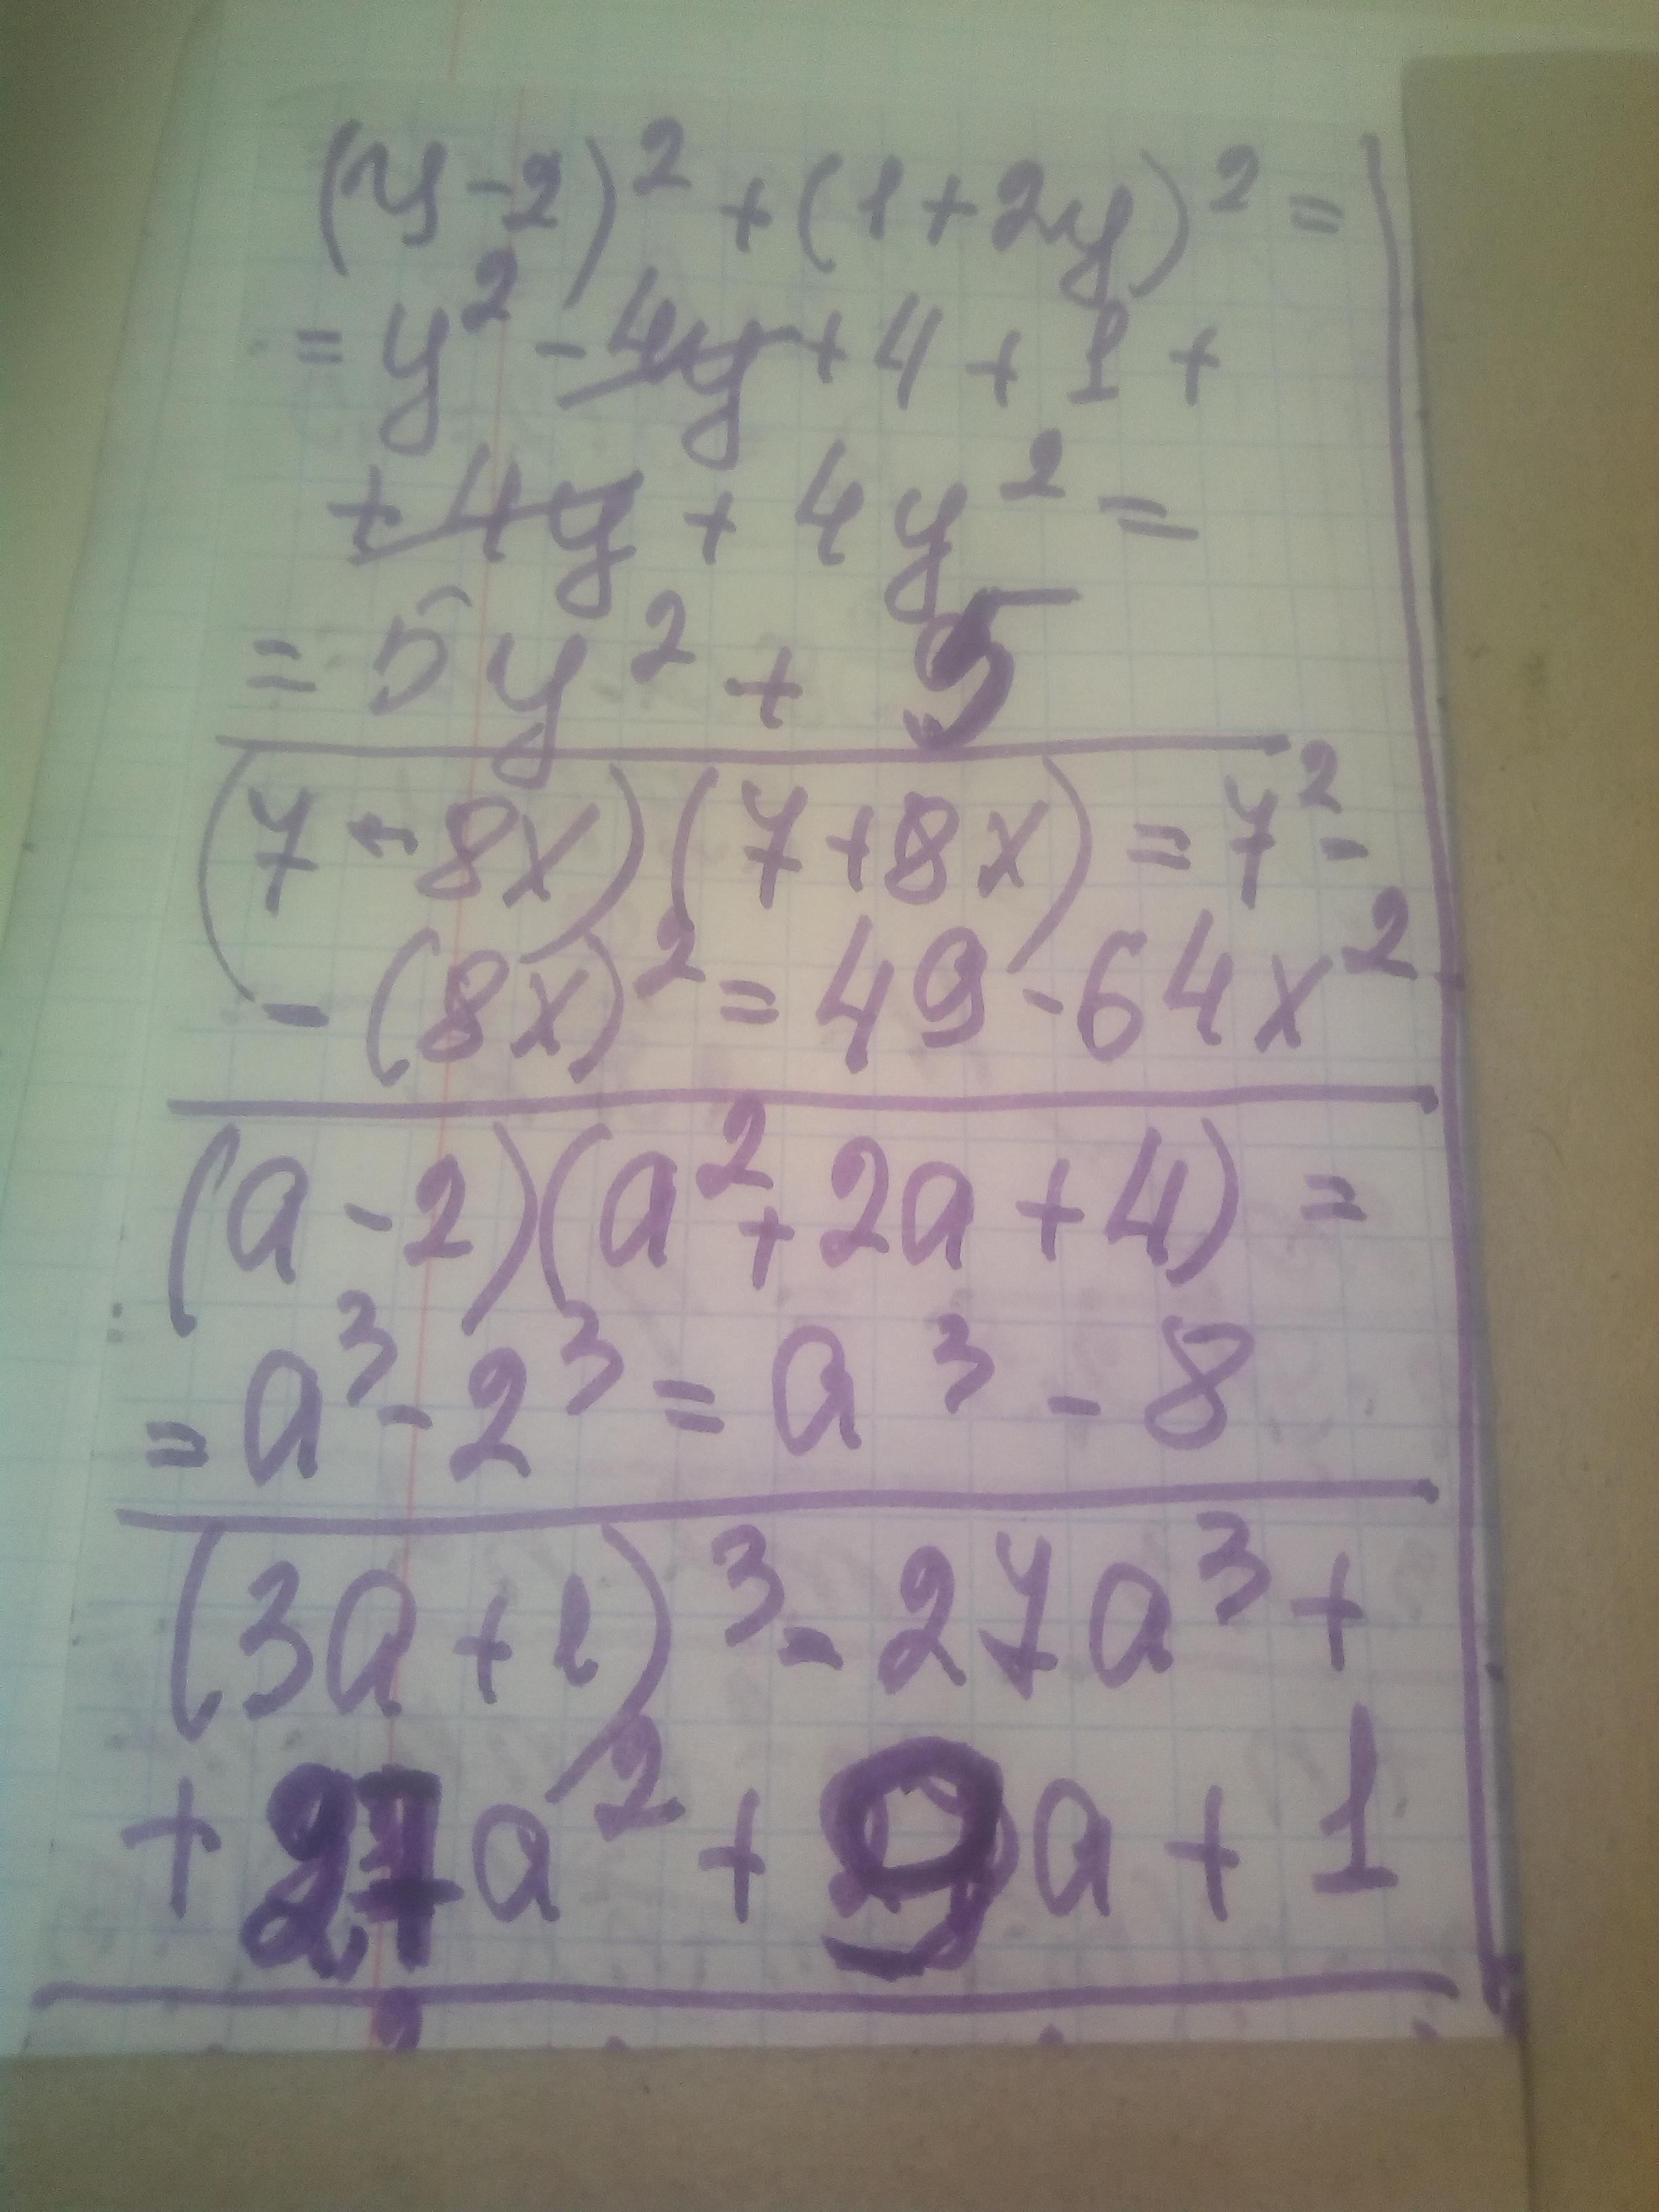 (y-2)² + (1+2y)² =
= y² - 4y + 4 + 1 +
+ 4y + 4y² =
= 5y² + 5
(7 - 8x)(7+8x) = 7² -
- (8x)² = 49 - 64x²
(a - 2)(a² + 2a + 4) =
= a³ - 2³ = a³ - 8
(3a + 1)³ - 27a³ +
+ 27a² + 9a + 1